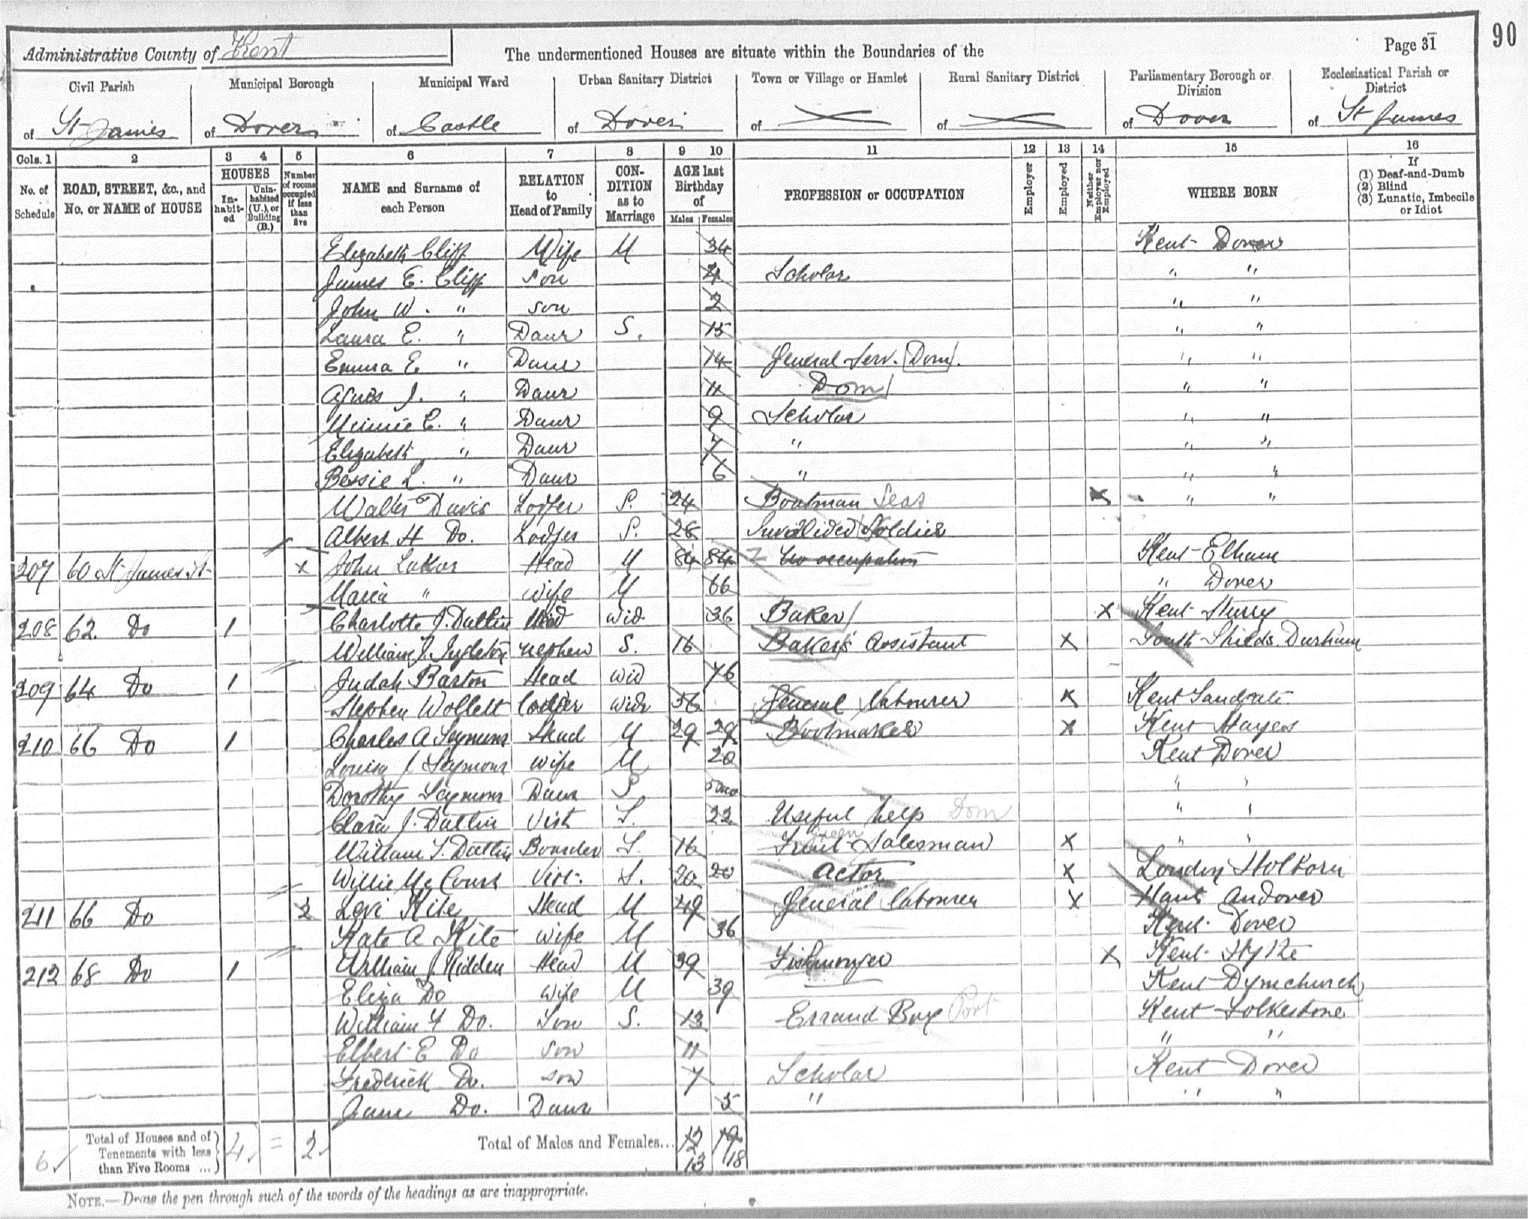 90
Administrative County of Kent The undermentioned Houses are situate within the Boundaries of the Page 31
Civil Parish Municipal Borough Municipal Ward Urban Sanitary District Town or Village or Hamlet Rural Sanitary District Parliamentary Borough or Division Ecclesiastical Parish or District
of St James of Dover of Castle of Dover of of of Dover of St James
Cols. 1 2 3 4 5 6 7 8 9 10 11 12 13 14 15 16
No. of Schedule ROAD, STREET, &c., and No. or NAME of HOUSE HOUSES Inhabited Uninhabited (U.), or Building (B.) Number of rooms occupied if less than five NAME and Surname of each Person RELATION to Head of Family CONDITION as to Marriage AGE last Birthday of Males Females PROFESSION or OCCUPATION Employer Employed Neither Employer nor Employed WHERE BORN If (1) Deaf-and-Dumb (2) Blind (3) Lunatic, Imbecile or Idiot
Elizabeth Cliff Wife M 34 Kent Dover
James E. Cliff Son 4 Scholar " "
John W. " Son 2 " "
Laura E. " Daur S. 15 " "
Emma E. " Daur 14 General Serv. Dom. " "
Agnes J. " Daur 11 Dom " "
Minnie C. " Daur 9 Scholar " "
Elizabeth " Daur 7 " " "
Bessie L. " Daur 6 " " "
Walter Davis Lodger S. 24 Boatman Seas x " "
Albert H Do. Lodger S. 28 Invalided Soldier
207 60 St James St x John Head M 84 84 No occupation Kent Elham
Maria " Wife M 66 " Dover
208 62 Do 1 Charlotte J. Head Wid 36 Baker x Kent Sturry
William J. Ingleton Nephew S. 16 Baker's Assistant x South Shields Durham
209 64 Do 1 Judah Barton Head Wid 76
Stephen Wollett Lodger Widr 56 General Labourer x Kent Sandgate
210 66 Do 1 Charles A Seymour Head M 29 29 Bootmaker x Kent Hayes
Louisa J. Seymour Wife M 20 Kent Dover
Dorothy Seymour Daur S 5mo " "
Clara J. Visit S. 22 Useful help Dom " "
William T. Boarder S. 16 Fruit Salesman x " "
Willie Mc Court Visit. S. 20 20 Actor x London Holborn
211 66 Do 2 Levi Kite Head M 49 General Labourer x Hants Andover
Kate A Kite Wife M 36 Kent Dover
212 68 Do 1 William J. Kidden Head M 39 Fishmonger x Kent Hythe
Eliza Do Wife M 39 Kent Dymchurch
William Y Do. Son S. 13 Errand Boy Port Kent Folkestone
Elbert E Do Son 11 " "
Frederick Do. Son 7 Scholar Kent Dover
Jane Do. Daur 5 " " "
6 Total of Houses and of Tenements with less than Five Rooms ... 4 = 2 Total of Males and Females... 12 19
13 18
NOTE.—Draw the pen through such of the words of the headings as are inappropriate.